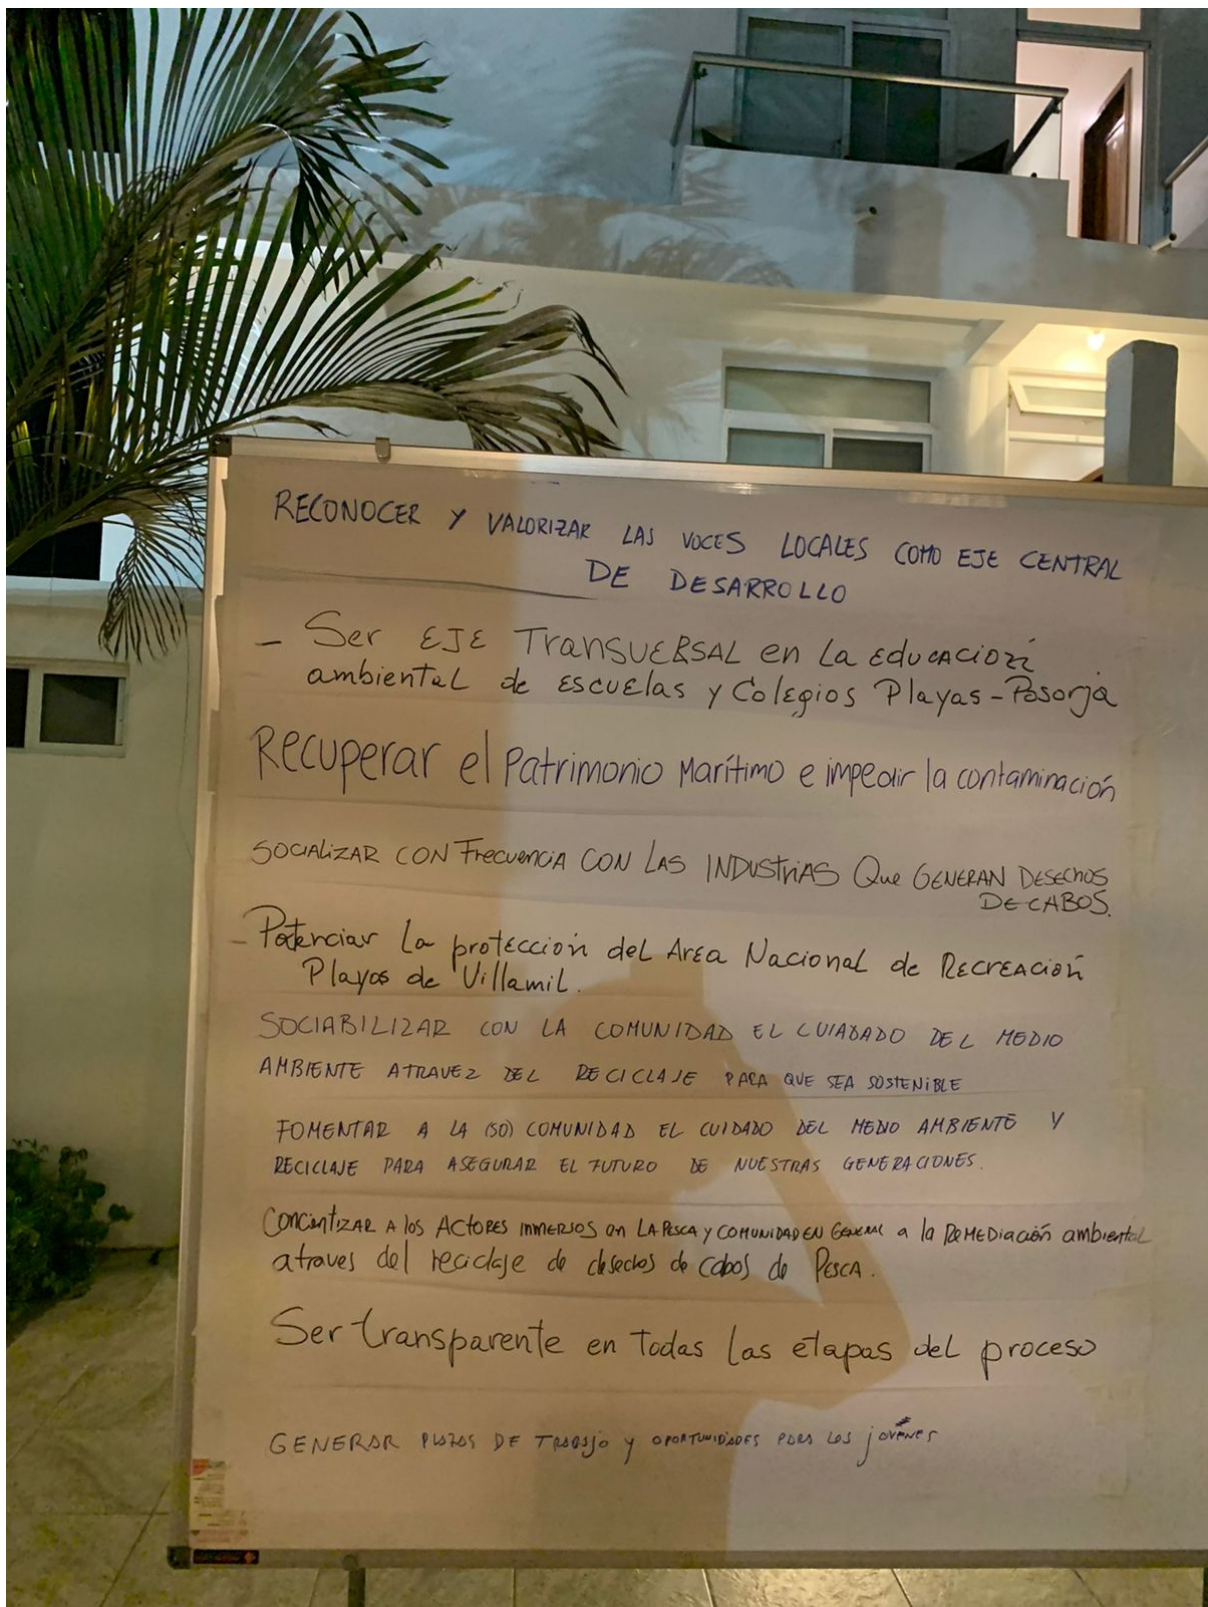 RECONOCER Y VALORIZAR LAS VOCES LOCALES COMO EJE CENTRAL
DE DESARROLLO
- Ser EJE TransvERSAL en la educación
ambiental de escuelas y Colegios Playas - Posorja
Recuperar el Patrimonio Marítimo e impedir la contaminación
SOCIALIZAR CON Frecuencia CON LAS INDUSTRIAS Que GENERAN DESECHOS
DE CABOS.
- Potenciar la protección del Area Nacional de RECREACIÓN
Playas de Villamil.
SOCIABILIZAR CON LA COMUNIDAD EL CUIADADO DEL MEDIO
AMBIENTE ATRAVEZ DEL RECICLAJE PARA QUE SEA SOSTENIBLE
FOMENTAR A LA (SO) COMUNIDAD EL CUIDADO DEL MEDIO AMBIENTE Y
RECICLAJE PARA ASEGURAR EL FUTURO DE NUESTRAS GENERACIONES.
CONCIENTIZAR A los ACTORES INMERSOS en LA PESCA y COMUNIDAD EN GENERAL a la REMEDIACIÓN ambiental
atraves del reciclaje de desechos de cabos de PESCA.
Ser transparente en todas las etapas del proceso
GENERAR PLAZAS DE TRABAJO y OPORTUNIDADES PARA LOS jovenes